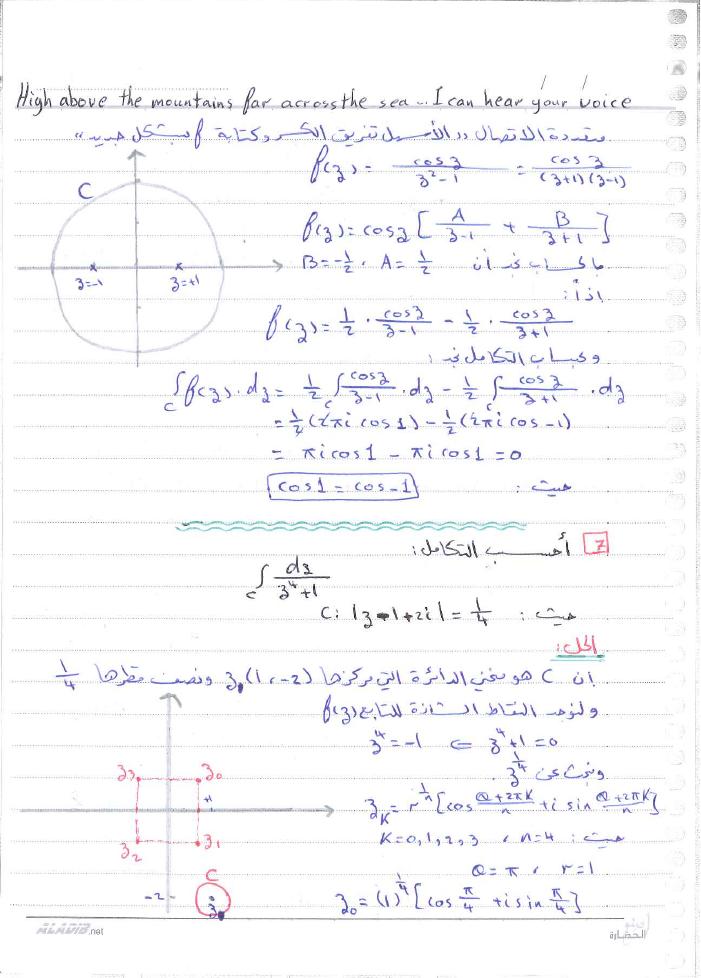 High above the mountains far across the sea... I can hear your voice
متعددة الاتصال والأسهل تفريق الكسر وكتابة f بشكل جديد
f(z) = cos z / (z² - 1) = cos z / ((z+1)(z-1))
C
f(z) = cos z [ A/(z-1) + B/(z+1) ]
بالحساب نجد أن A = 1/2 ، B = -1/2
z=-1 z=+1
إذاً :
f(z) = 1/2 · cos z/(z-1) - 1/2 · cos z/(z+1)
وبحساب التكامل نجد :
∫c f(z)·dz = 1/2 ∫c cos z/(z-1) · dz - 1/2 ∫c cos z/(z+1) · dz
= 1/2 (2πi cos1) - 1/2 (2πi cos-1)
= πi cos1 - πi cos1 = 0
حيث : cos1 = cos-1
7 أحسب التكامل :
∫c dz/(z⁴+1)
حيث : C: |z-1+2i| = 1/4
الحل :
إن C هو منحني الدائرة التي مركزها z(1,-2) ونصف قطرها 1/4
ولنوجد النقاط الشاذة للتابع f(z)
z⁴+1=0 ⇐ z⁴=-1
ونبحث عن z^(1/4)
z3 z0
+1
z_K = r^(1/n) [cos (θ+2πK)/n + i sin (θ+2πK)/n]
z2 z1
حيث : n=4 ، K=0,1,2,3
r=1 ، θ=π
C
-2
z0 = (1)^(1/4) [cos π/4 + i sin π/4]
ALADIB.net
الحضارة